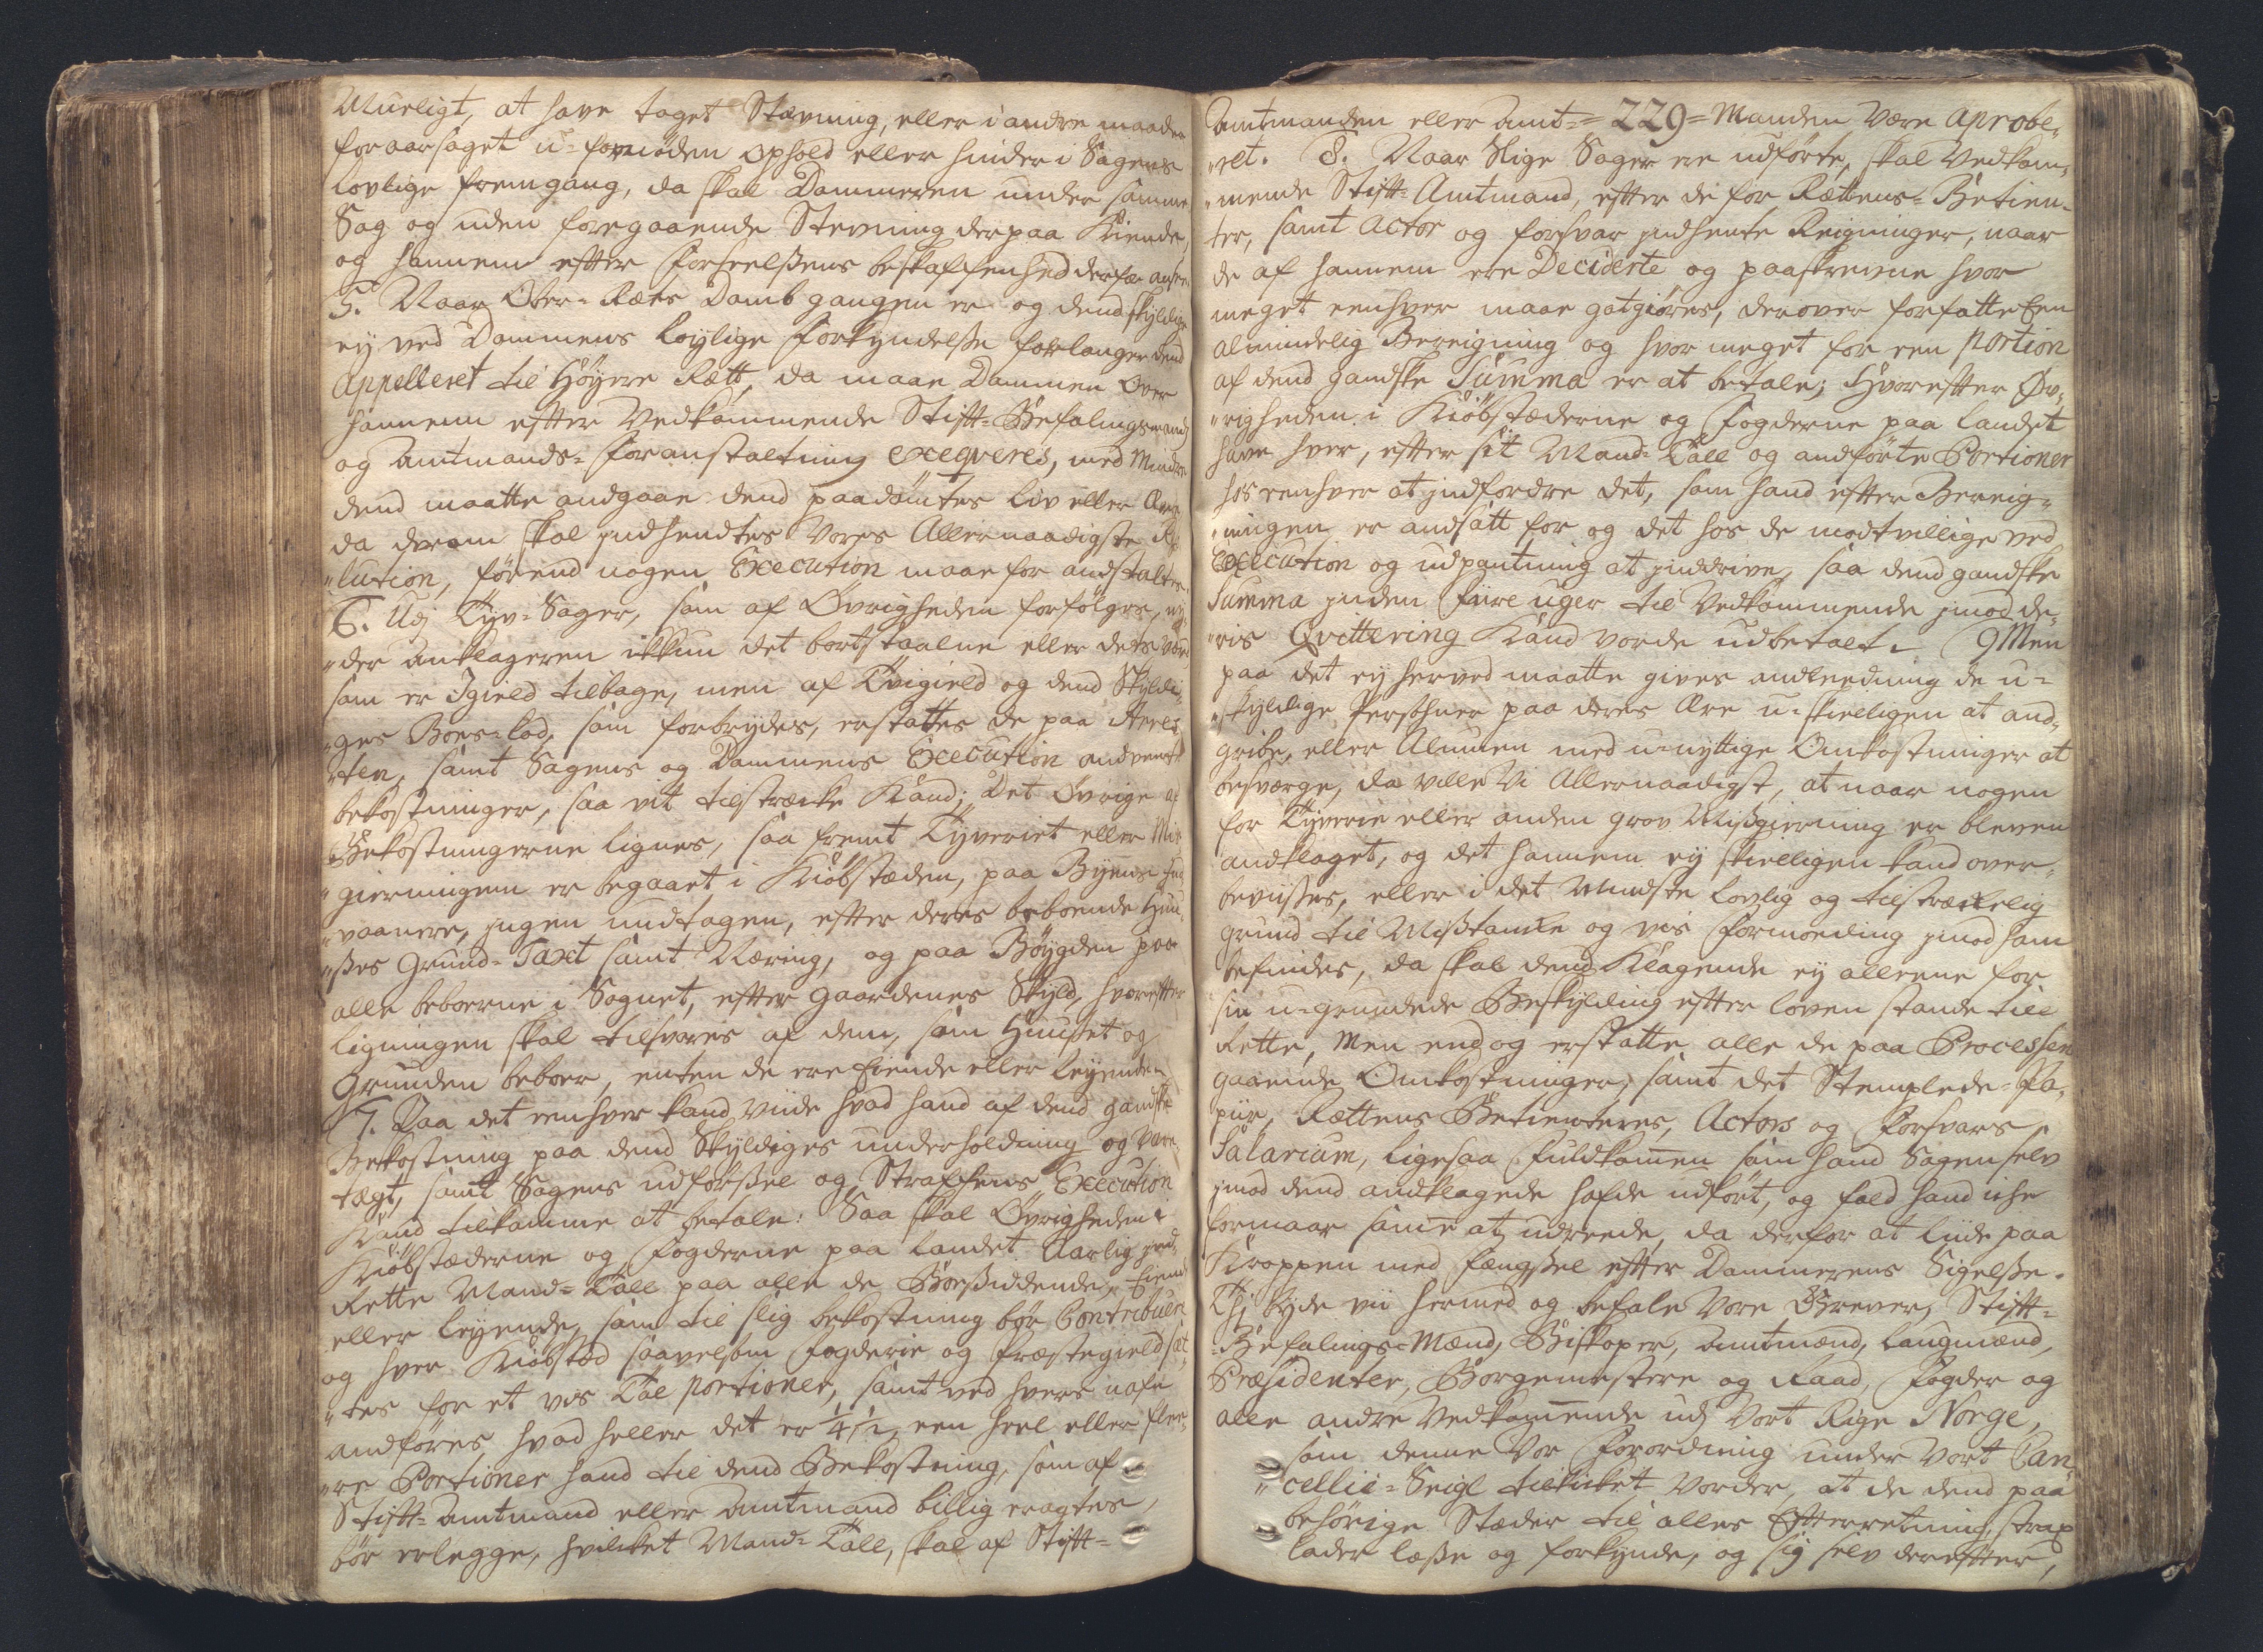 Mueligt, at have taget Stævning, eller i andre maader
foraarsaget u-fornöden Ophold eller hinder i Sagens
lovlige fremgang, da skal Dommeren under samme
Sag og uden foregaaende Stevning derpaa Kiende,
og hannem efter Forseelsens beskaffenhed derfor ansee.
5. Naar Over-Rets Domb gangen er og dend skyldige
ej ved Dommens Lovlige Forkyndelse forlanger dend
Appelleret til Höyere Rætt, da maae Dommen over
hannem efter Vedkommende Stift-Befalingsmands
og Amtmands-foranstaltning exeqveres, med Mindre
dend maatte andgaae dend paadömtes Liv eller Ære,
da derom skal indhendtes Vores Allernaadigste Re-
"lution, förend nogen Execution maae for andstaltes.
6. Udj Tyv-Sager, som af Övrigheden forfölges, ny-
"der Anklageren ikkun det bortstaalne eller dets Værd
som er Igield tilbage, men af Tvigield og dend Skyldi-
"ges Boes-Lod, som forbrydes, erstattes de paa Arres-
"ten, samt Sagens og Dommens Execution andvendte
bekostninger, saa vit tilstræcke Kand; Det Övrige af
Bekostningerne lignes, saa fremt Tyveriet eller Mis-
"gierningen er begaaet i Kiöbstæden, paa Byens Ind-
"vaanere, ingen undtagen, efter deres beboende Huu-
"ses Grund-Taxt samt Næring, og paa Böygden paa
alle beboerne i Sognet, efter Gaardenes Skyld, hvorefter
Ligningen skal tilsvares af dem, som Huuset og
Grunden beboer, enten de ere Eiende eller Leyende.
7. Paa det eenhver kand viide hvad hand af dend gandske
Bekostning paa dend Skyldiges underholdning og Vare-
tægt, samt Sagens udförsel og Straffens Execution
Kand tilkomme at betale: Saa skal Övrigheden i
Kiöbstæderne og Fogderne paa Landet Aarlig ind-
Rette Mand-Tall paa alle de Boesiddende, Eiende
eller Leyende, som til slig bekostning bör Contribuere
og hver Kiöbstad saavelsom Fogderie og Præstegield sæt-
"tes for et vis Tal portioner, samt ved hvers nafn
andföres, hvad heller det er 1/4 1/2, een heel eller flee-
"re Portioner hand til dend Bekostning, som af
Stift-Amtmand eller Amtmand billig eragtes,
bör erlegge, hvilcket Mand-Tall, skal af Stift-
Amtmanden eller Amt= =229= Manden være aprobe-
"ret. 8. Naar Slige Sager ere udförte, skal Vedkom-
"mende Stift-Amtmand, efter de for Rættens-Betien-
ter, samt Actor og forsvar indhente Reigninger, naar
de af hannem ere Deciderte og paaskrevne hvor
meget eenhver maae godtgiöres, derover forfatte Een
almindelig Bereigning og hvor meget for een Portion
af dend gandske Summa er at betale; Hvorefter Öv-
"righeden i Kiöbstæderne og Fogderne paa Landet
have hver, efter sit Mand-Tall og andförte Portioner
hos eenhver at indfordre det, som hand efter Bereig-
"ningen er andsatt for og det hos de modtvillige ved
Execution og udpantning at inddrive, saa dend gandske
Summa inden Fiire uger til Vedkommende imod de-
"ris Qvittering Kand vorde udbetalt. 9 Men
paa det ey herved maatte gives andleedning de u-
"skyldige Persohner paa deres Ære u-skielligen at and-
gribe, eller Almuen med u-nyttige Omkostninger at
besværge, da ville Vi Allernaadigst, at naar nogen
for Tyverie eller anden grov Misgierning er bleven
andklaget, og det hannem ey skielligen kand over-
bevises, eller i det Mindste lovlig og tilstræckelig
grund til Mistanke og vis Formoding imod ham
befindes, da skal dend Klagende ey alleene for
sin u-grundede Beskylding efter Loven stande til
Rette, Men end og erstatte alle de paa Processen
gaaende Omkostninger, samt det Stemplede-Pa-
piir, Rættens Betienteres, Actors og Forsvars
Salarium, ligesaa Fuldkommen som hand Sagen selv
imod dend andklagede hafde udfört, og fald hand iche
formaar samme at udreede, da derfor at liide paa
Kroppen med fængsel efter Dommerens Sigelse.
Thi byde vii hermed og befale Vore Grever, Stift-
-Befalings-Mænd, Biskoper, Amtmænd, Laugmænd,
Præsidenter, Borgemestere og Raad, Fogder og
alle andre Vedkommende udj Vort Rige Norge,
som denne Vor Forordning under Vort Can-
"cellie-Seigl tilskicket vorder, at de dend paa
behörige Stæder til alles Efterretning strax
lader læse og forkynde, og sig selv derefter,